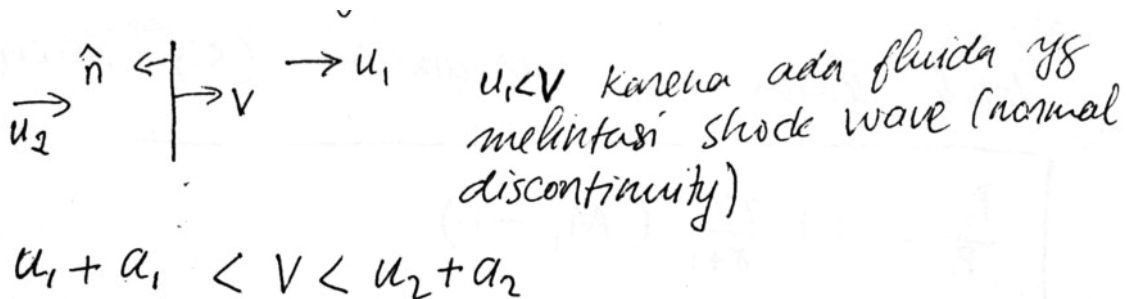 n̂ ← → u₁
→ V
u₂
u₁<V karena ada fluida yg
melintasi shock wave (normal
discontinuity)
u₁ + a₁ < V < u₂ + a₂